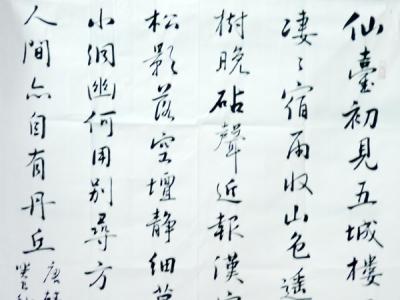 仙臺初見五城樓
凄々宿雨收山色遥
樹晚砧聲近報漢
松影落空壇静細
小洞幽何用别尋方
人間亦自有丹丘
唐